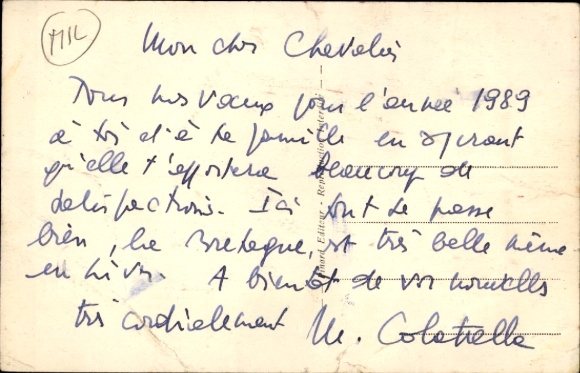 MIL
Mon cher Chevalier
Tous nos vœux pour l'année 1989
à toi et à ta famille en espérant
qu'elle t'apportera beaucoup de
satisfactions. Ici tout se passe
bien, la Bretagne est très belle même
en hiver. A bientôt de vos nouvelles
très cordialement M. Colatrella
Editeur - Reproduction interdite